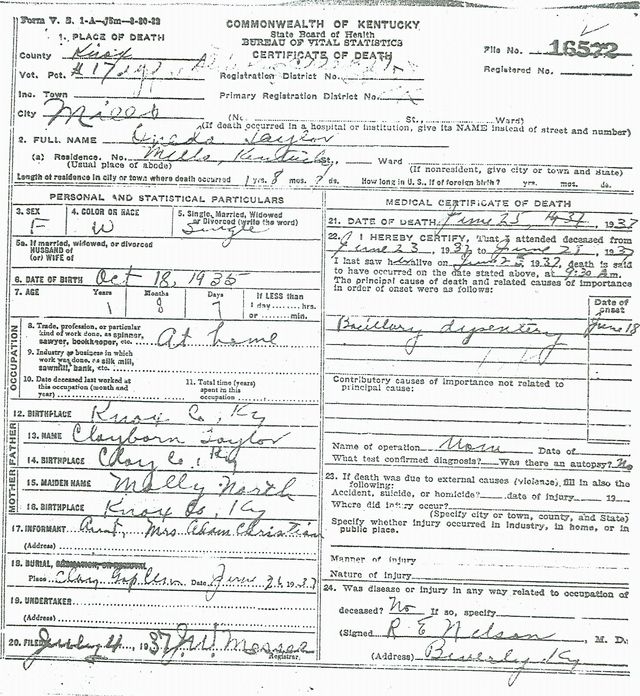 Form V. S. 1-A
COMMONWEALTH OF KENTUCKY
State Board of Health
BUREAU OF VITAL STATISTICS
CERTIFICATE OF DEATH
File No. 16572
Registered No.
1. PLACE OF DEATH
County Knox
Vot. Pct. #17
Registration District No.
Inc. Town
Primary Registration District No.
City Mills
(No. St., Ward)
(If death occurred in a hospital or institution, give its NAME instead of street and number)
2. FULL NAME Taylor
(a) Residence. No. Mills, Kentucky St., Ward
(Usual place of abode) (If nonresident, give city or town and State)
Length of residence in city or town where death occurred 1 yrs. 8 mos. 7 ds. How long in U. S., if of foreign birth? yrs. mos. ds.
PERSONAL AND STATISTICAL PARTICULARS
3. SEX F
4. COLOR OR RACE W
5. Single, Married, Widowed or Divorced (write the word) Single
5a. If married, widowed, or divorced
HUSBAND of
(or) WIFE of
6. DATE OF BIRTH Oct 18, 1935
7. AGE Years 1 Months 8 Days 7 If LESS than
1 day hrs.
or min.
OCCUPATION
8. Trade, profession, or particular
kind of work done, as spinner,
sawyer, bookkeeper, etc. At home
9. Industry or business in which
work was done, as silk mill,
sawmill, bank, etc.
10. Date deceased last worked at
this occupation (month and
year)
11. Total time (years)
spent in this
occupation
12. BIRTHPLACE Knox Co, Ky
FATHER
13. NAME Clayborn Taylor
14. BIRTHPLACE Clay Co, Ky
MOTHER
15. MAIDEN NAME Molly North
16. BIRTHPLACE Knox Co, Ky
17. INFORMANT Aunt, Mrs Adam Christian
(Address)
18. BURIAL, CREMATION, OR REMOVAL
Place Clay Gap Date June 1937
19. UNDERTAKER
(Address)
20. FILED July 4, 1937 J. W. Registrar.
MEDICAL CERTIFICATE OF DEATH
21. DATE OF DEATH June 25, 1937
22. I HEREBY CERTIFY, That I attended deceased from
June 23, 1937 to June 1937
I last saw her alive on June 1937, death is said
to have occurred on the date stated above, at 9:30 A.m.
The principal cause of death and related causes of importance
in order of onset were as follows:
Date of
onset
Bacillary dysentery June 18
Contributory causes of importance not related to
principal cause:
Name of operation None Date of
What test confirmed diagnosis? Was there an autopsy? No
23. If death was due to external causes (violence), fill in also the
following:
Accident, suicide, or homicide? date of injury 19
Where did injury occur?
(Specify city or town, county, and State)
Specify whether injury occurred in industry, in home, or in
public place.
Manner of injury
Nature of injury
24. Was disease or injury in any way related to occupation of
deceased? No If so, specify
(Signed) R E Nelson, M. D.
(Address) Beverly Ky